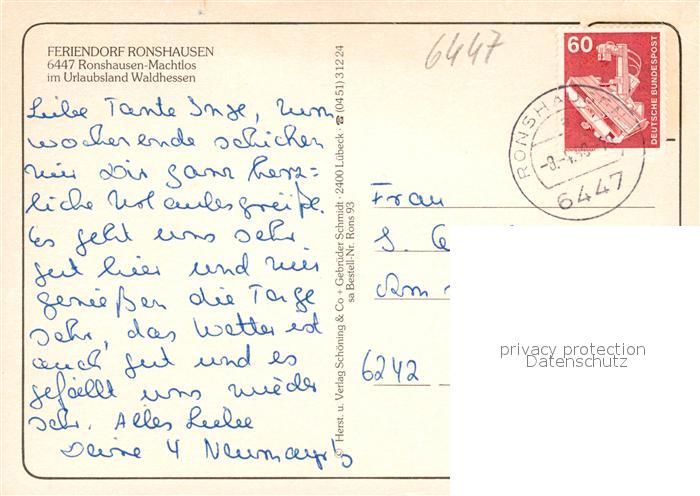 FERIENDORF RONSHAUSEN
6447 Ronshausen-Machtlos
im Urlaubsland Waldhessen
Liebe Tante Inge, zum
wochenende schicken
wir Dir ganz herz=
liche Urlaubsgrüße.
Es geht uns sehr
gut hier und wir
genießen die Tage
sehr, das Wetter ist
auch gut und es
gefällt uns wieder
sehr. Alles Liebe
Deine 4 Neumayr's
© Herst. u. Verlag Schöning & Co + Gebrüder Schmidt · 2400 Lübeck · ☎ (04 51) 3 12 24
sa Bestell-Nr. Rons 93
6447
60
DEUTSCHE BUNDESPOST
RONSHAUSEN
6447
Frau
Am
6242
privacy protection
Datenschutz